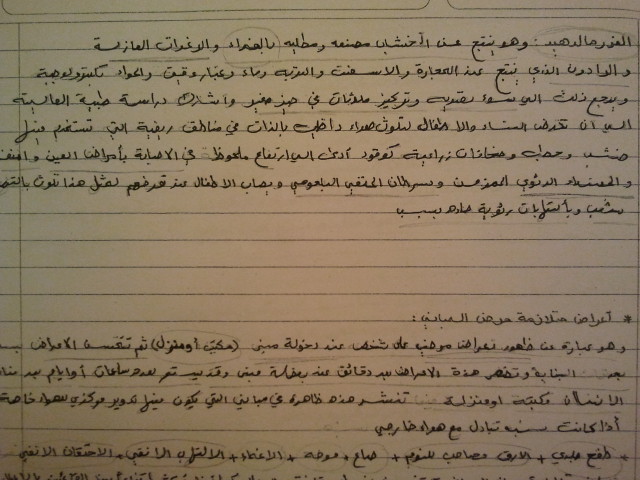 الفورمالدهيد : وهو ينتج عن الأخشاب مصنعه ومطليه بالغراء والرغوات العازلة
والرادون الذي ينتج عن الحجارة والاسمنت والتربه وماء وغبار دقيق والمواد بكتيرولوجية
ويرجع ذلك الى سوء تهويه وتركيز ملوثات في حيز صغير وأشارت دراسة طبية العالمية
الى أن تعرض النساء والاطفال لتلوث هواء داخلي بالذات في مناطق ريفية التي تستخدم فيها
خشب وحطب ومخلفات زراعية كوقود أدى الى ارتفاع ملحوظ في الاصابة بأمراض العين
والرئوي المزمن وسرطان الحنقي البلعومي ويصاب الاطفال عند تعرضهم لمثل هذا تلوث
وبألتهابات رئوية حاده بسبب
* أعراض متلازمة مرض المباني :
وهو عبارة عن ظهور اعراض مرض على شخص عند دخولة مبنى (مكتب أو منزل) ثم تختفي الاعراض
البناية وتظهر هذة الاعراض بعد دقائق عند مبنى وقد يستمر لعدة ساعات أو ايام بعد
الانسان مكتبه او منزلة تنتشر هذه ظاهرة في مباني التي يكون فيها تدوير مركزي للهواء خاصة
أذا كانت تبادل مع هواء خارجي
* طفح جلدي + الارق مصاحب للنوم + صداع + دوخه + الاعياء + الالتهاب الانفي + الاحتقان الانفي